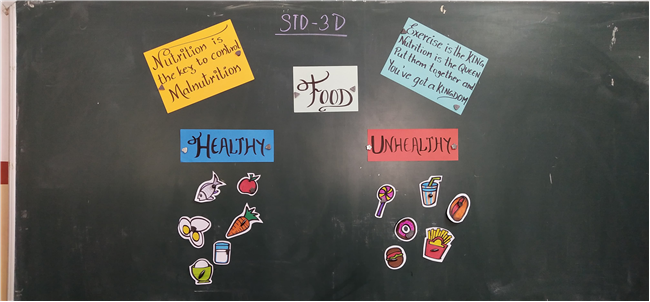 STD-3D
Nutrition is
the key to control
Malnutrition
Exercise is the KING,
Nutrition is the QUEEN
Put them together and
You've got a KINGDOM
FOOD
HEALTHY
UNHEALTHY